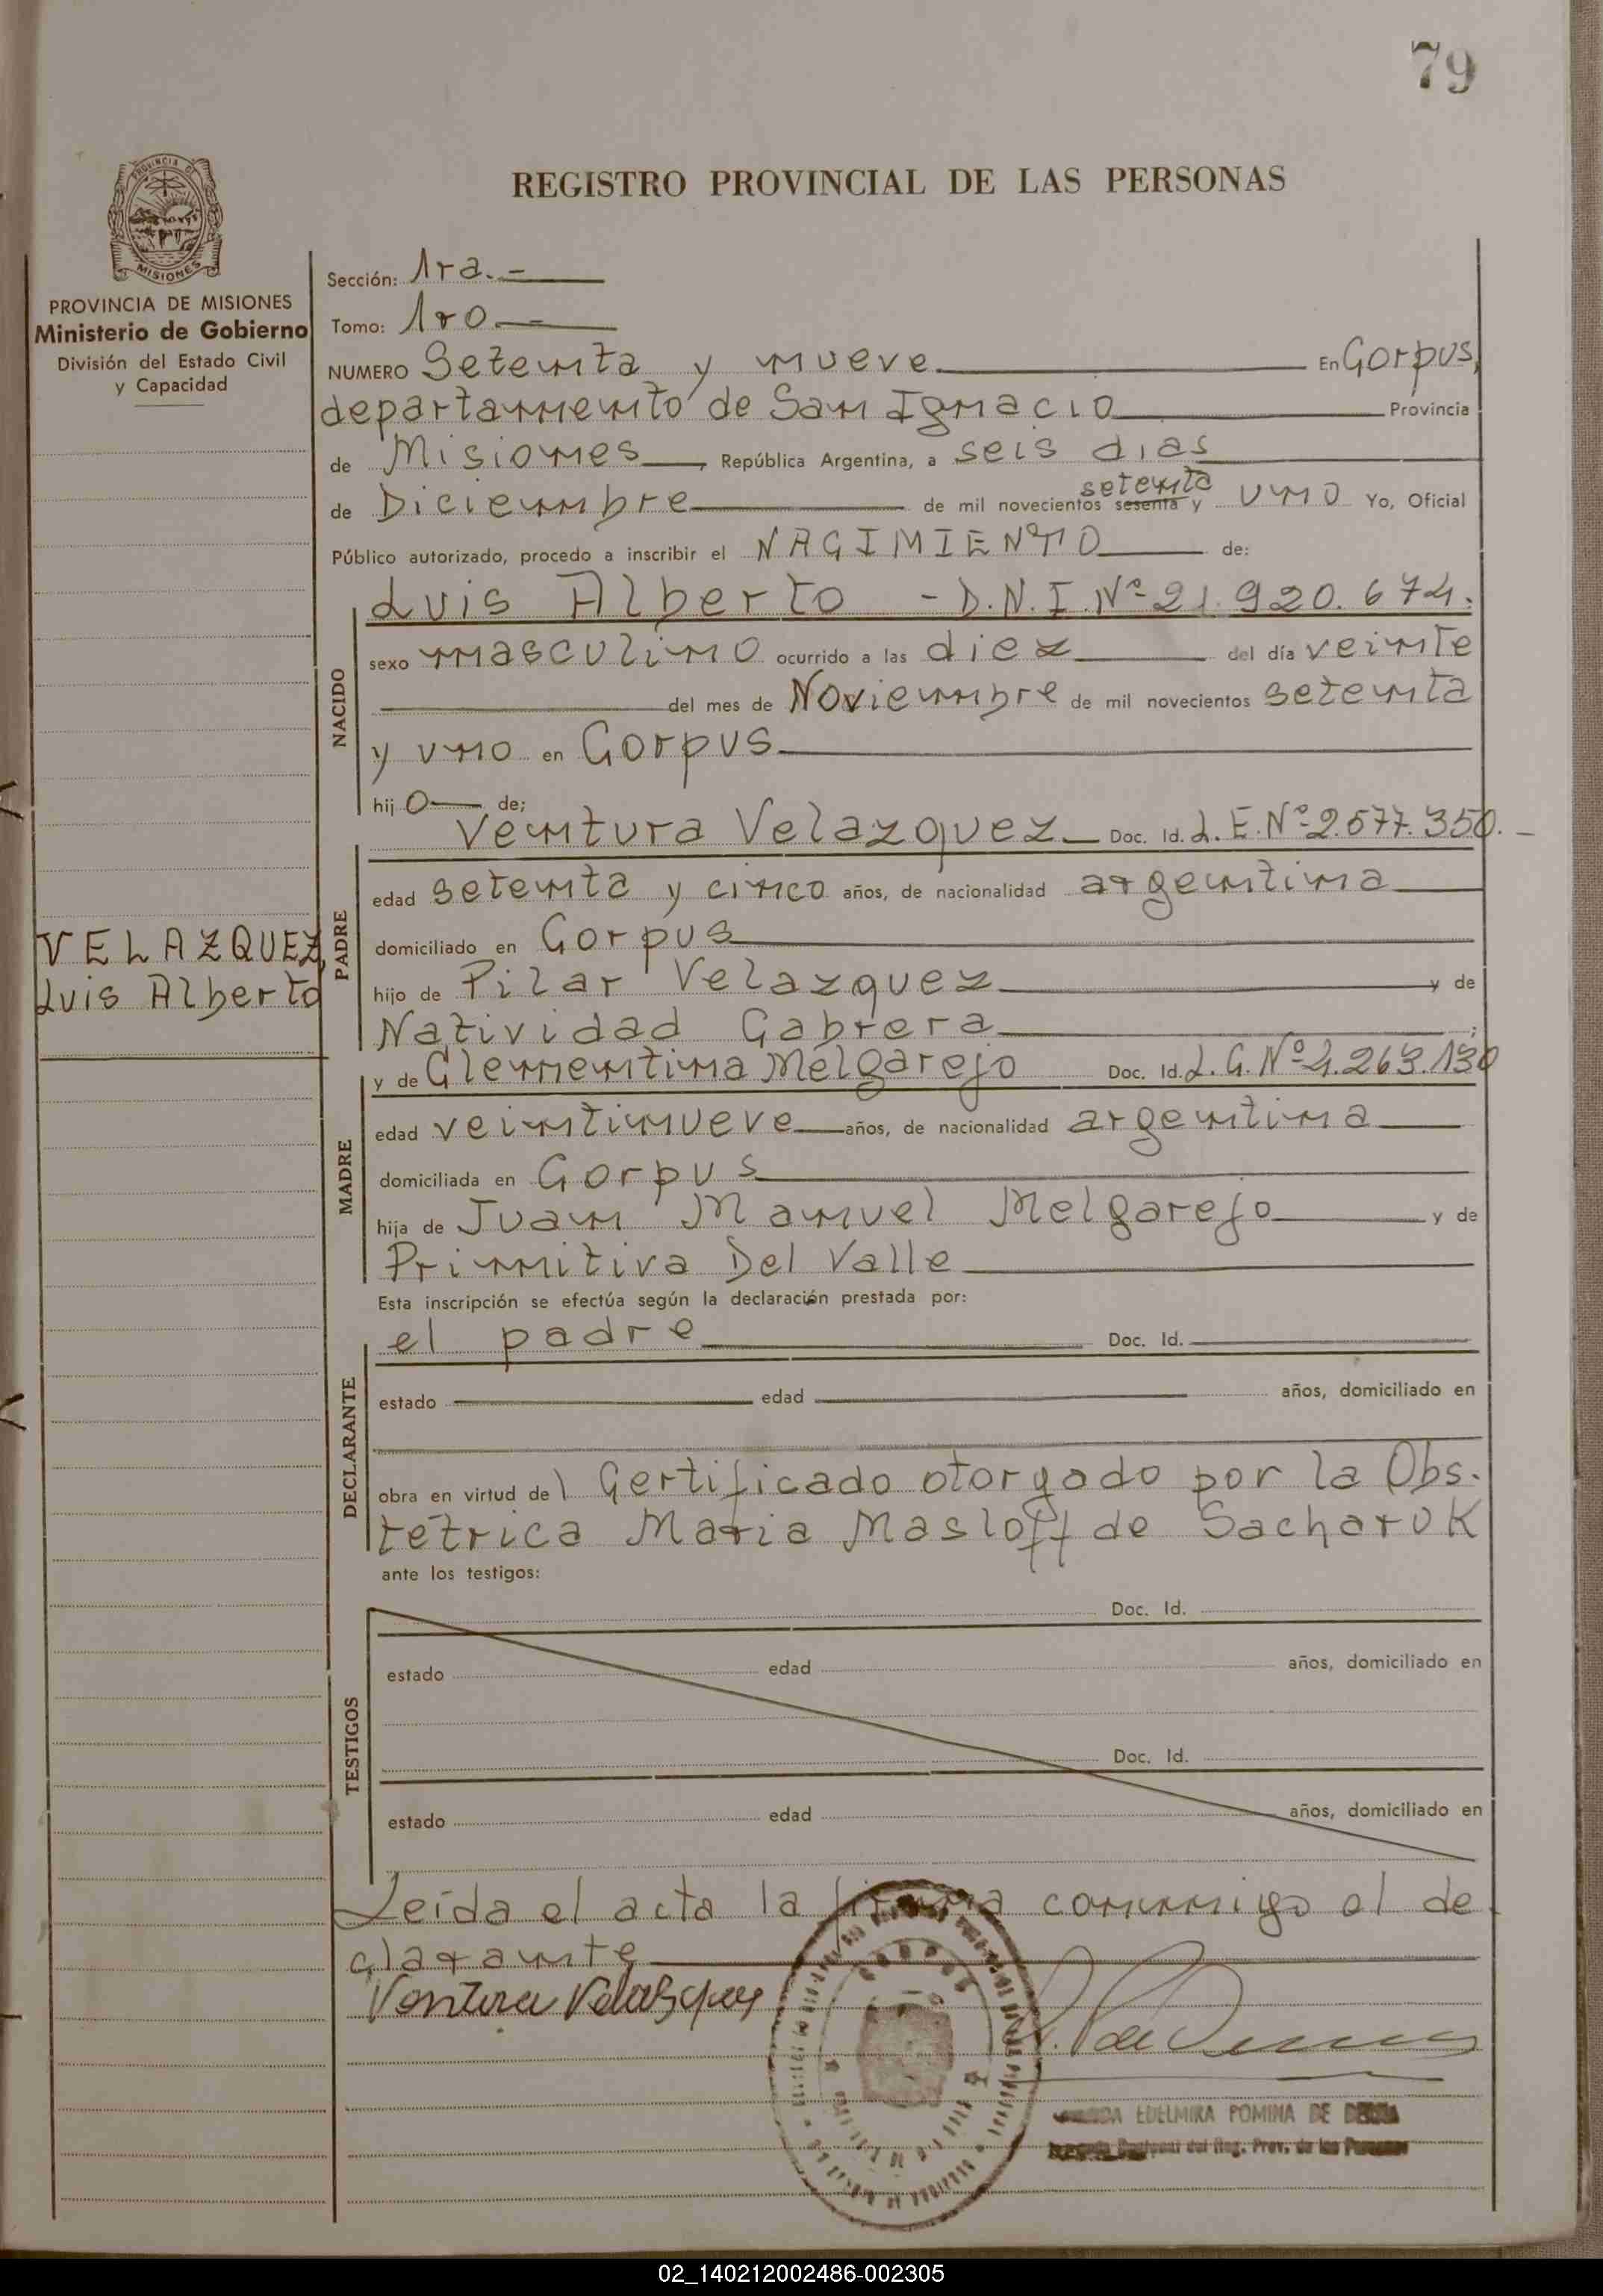 79
PROVINCIA DE
MISIONES
REGISTRO PROVINCIAL DE LAS PERSONAS
PROVINCIA DE MISIONES
Ministerio de Gobierno
División del Estado Civil
y Capacidad
Sección: 1ra.-
Tomo: 1ro.-
NUMERO Setenta y nueve En Corpus,
departamento de San Ignacio Provincia
de Misiones, República Argentina, a seis dias
setenta
de Diciembre de mil novecientos sesenta y uno Yo, Oficial
Público autorizado, procedo a inscribir el NACIMIENTO de:
NACIDO
Luis Alberto - D.N.I.Nº 21.920.674.
sexo masculino ocurrido a las diez del día veinte
del mes de Noviembre de mil novecientos setenta
y uno en Corpus
hijo de;
PADRE
Ventura Velazquez Doc. Id. L.E.Nº 2.577.350.-
edad setenta y cinco años, de nacionalidad argentina
domiciliado en Corpus
hijo de Pilar Velazquez y de
Natividad Cabrera;
VELAZQUEZ,
Luis Alberto
MADRE
y de Clementina Melgarejo Doc. Id. L.C.Nº 4.263.130
edad veintinueve años, de nacionalidad argentina
domiciliada en Corpus
hija de Juan Manuel Melgarejo y de
Primitiva Del Valle
Esta inscripción se efectúa según la declaración prestada por:
DECLARANTE
el padre Doc. Id.
estado edad años, domiciliado en
obra en virtud del Certificado otorgado por la Obs.
tétrica Maria Masloff de Sacharuk
ante los testigos:
TESTIGOS
Doc. Id.
estado edad años, domiciliado en
Doc. Id.
estado edad años, domiciliado en
Leída el acta la firma conmigo el de
clarante
Ventura Velasquez
EDELMIRA POMINA DE
del Reg. Prov. de las Personas
02_140212002486-002305